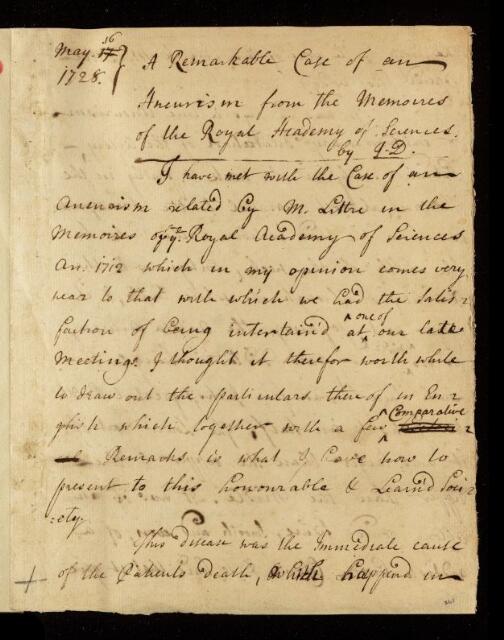 May. 16
1728.
A Remarkable Case of an
Aneurism from the Memoires
of the Royal Academy of Sciences.
by J-D.
I have met with the Case of an
Aneurism related by M. Littre in the
Memoires of ye. Royal Academy of Sciences
An. 1712 which in my opinion comes very
near to that with which we had the satis-
faction of being intertain'd at one of our late
Meetings. I thought it therefor worth while
to draw out the particulars there of in En-
glish which together with a few Comparative
Remarks is what I have now to
present to this honourable & Learn'd Soci-
ety.
This disease was the Immediate cause
of the Patients Death, which happend in